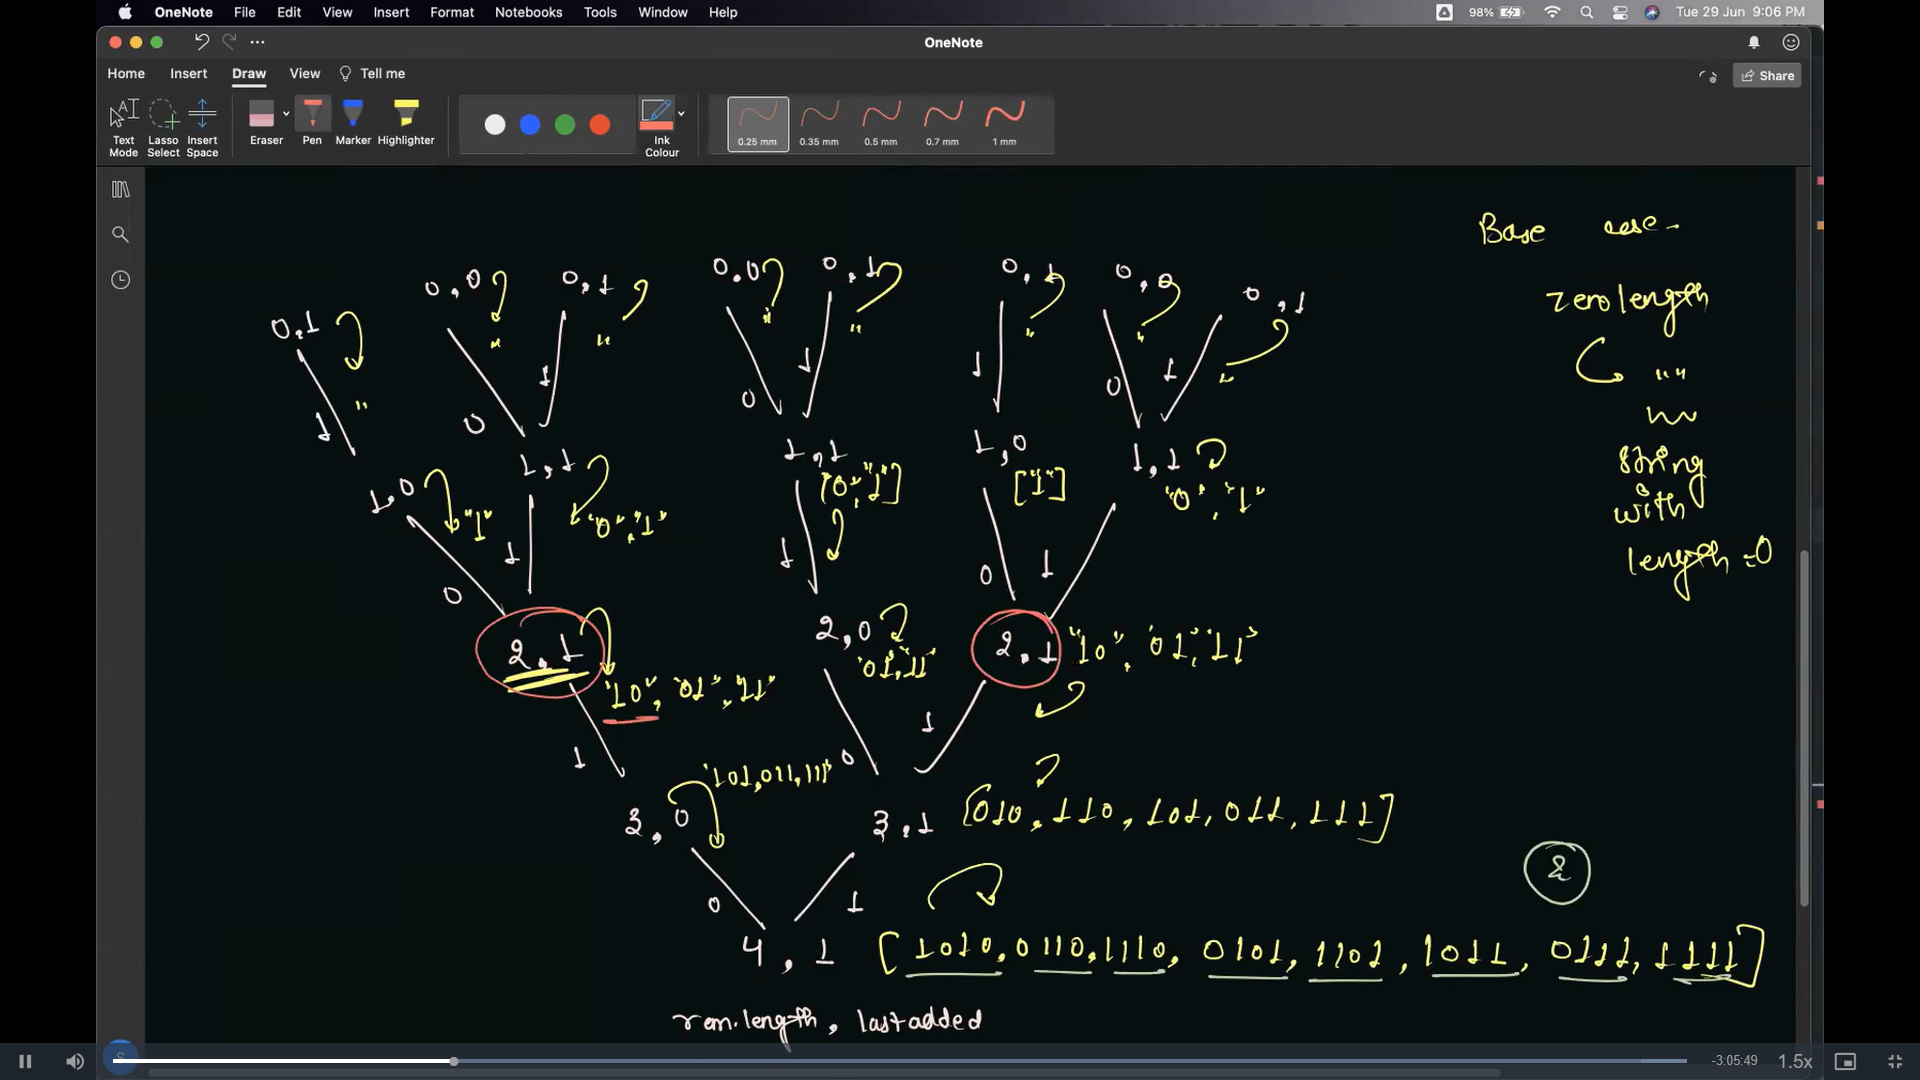 OneNote File Edit View Insert Format Notebooks Tools Window Help 98% Tue 29 Jun 9:06 PM
OneNote
Home Insert Draw View Tell me Share
Text Mode Lasso Select Insert Space Eraser Pen Marker Highlighter Ink Colour 0.25 mm 0.35 mm 0.5 mm 0.7 mm 1 mm
Base case-
0,1 0,0 0,1 0,0 0,1 0,1 0,0 0,1
zero length
" " " " " " " "
""
1 0 1 0 1 1 0 1
string
1,0 1,1 1,1 1,0 1,1
"1" "0","1" ["0","1"] ["1"] "0","1"
with
length=0
0 1 1 0 1
2,1 2,0 2,1 "10", "01","11"
"10", "01","11" "01,11"
1 0 1
"101,011,111"
3,0 3,1 [010, 110, 101, 011, 111]
2
0 1
4, 1 [1010, 0110, 1110, 0101, 1101, 1011, 0111, 1111]
rem.length, lastadded
-3:05:49 1.5x